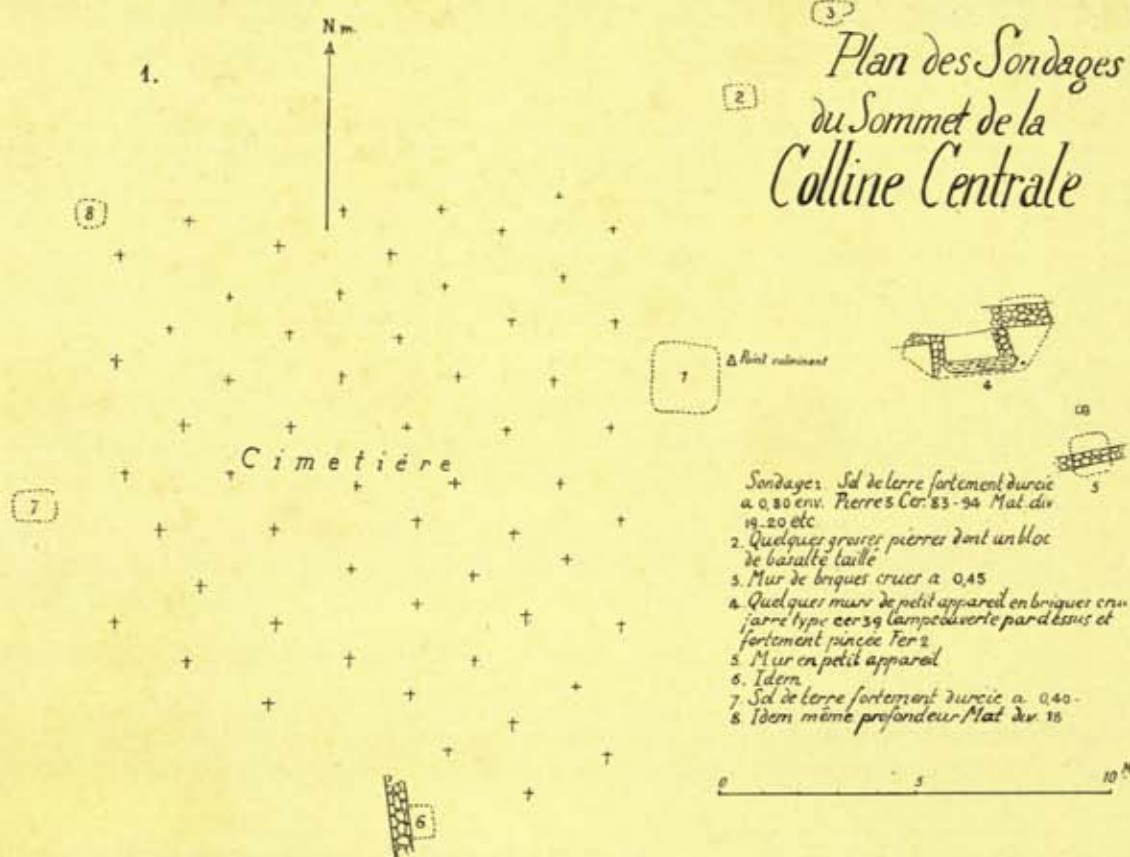 3
N m.
1.
Plan des Sondages
du Sommet de la
Colline Centrale
2
8
1
Point culminant
4
Cimetière
5
7
Sondage 1. Sol de terre fortement durcie
a 0,80 env. Pierre 3 Cer. 83-94 Mat. div
19-20 etc
2. Quelques grosses pierres dont un bloc
de basalte taillé
3. Mur de briques crues a 0,45
4. Quelques murs de petit appareil en briques cru
jarre type cer 39 Lampe ouverte par dessus et
fortement pincée Fer 2
5. Mur en petit appareil
6. Idem
7. Sol de terre fortement durcie a 0,40-
8. Idem même profondeur Mat div. 18
0 5 10 M
6